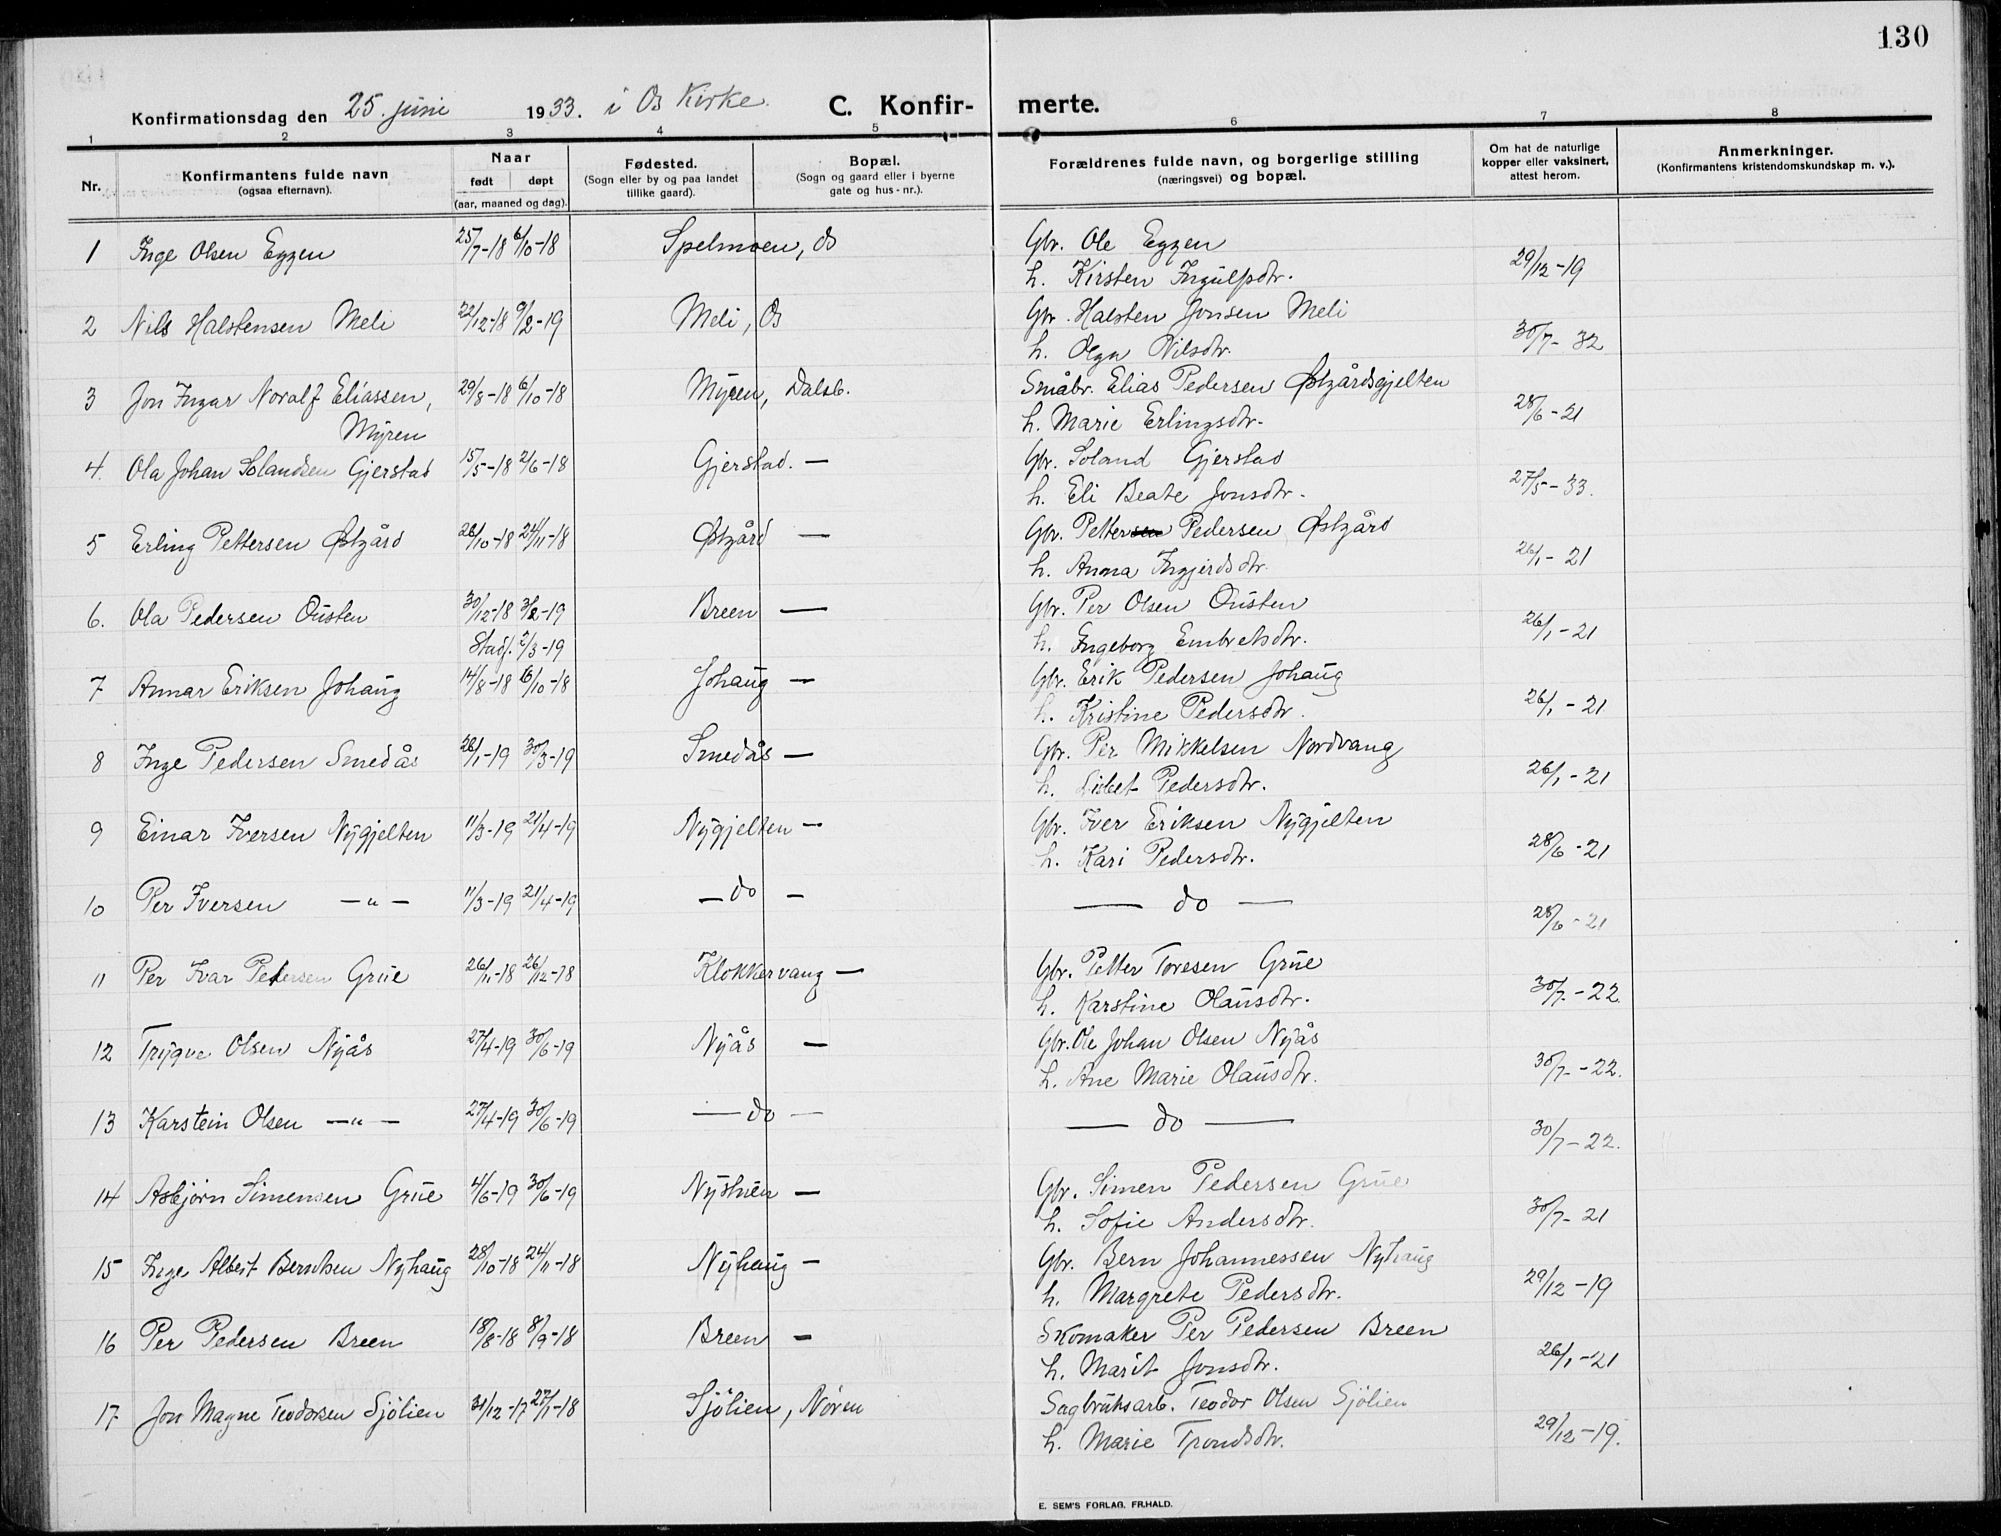 130
Konfirmationsdag den 25. juni 1933. i Os Kirke. C. Konfir- merte.
1 2 3 4 5 6 7 8
Nr. Konfirmantens fulde navn (ogsaa efternavn). Naar født døpt (aar, maaned og dag). Fødested. (Sogn eller by og paa landet tillike gaard). Bopæl. (Sogn og gaard eller i byerne gate og hus-nr.). Forældrenes fulde navn, og borgerlige stilling (næringsvei) og bopæl. Om hat de naturlige kopper eller vaksinert, attest herom. Anmerkninger. (Konfirmantens kristendomskundskap m. v.).
1 Inge Olsen Eggen 25/7-18 6/10-18 Spelmoen, Os Gbr. Ole Eggen
h. Kirsten Ingulfsdtr. 29/12-19
2 Nils Halstensen Meli 22/12-18 9/2-19 Meli, Os Gbr. Halsten Jonsen Meli
h. Olga Nilsdtr. 30/7-32
3 Jon Ingar Noralf Eliassen, 29/8-18 6/10-18 Myren, Dalsb. Småbr. Elias Pedersen Østgårdsgjelten
Myren h. Marie Erlingsdtr. 28/6-21
4. Ola Johan Solandsen Gjerstad 15/5-18 2/6-18 Gjerstad. — Gbr. Soland Gjerstad
h. Eli Beate Jonsdtr. 27/5-33.
5 Erling Pettersen Østgård 26/10-18 24/11-18 Østgård — Gbr. Pettersen Pedersen Østgård
h. Anna Ingjerdsdtr. 26/1-21
6. Ola Pedersen Ousten 30/12-18 3/2-19 Breen — Gbr. Per Olsen Ousten
Stadf. 2/3-19 h. Ingeborg Embretsdtr. 26/1-21
7 Annar Eriksen Johaug 14/8-18 6/10-18 Johaug — Gbr. Erik Pedersen Johaug
h. Kristine Pedersdtr. 26/1-21
8 Inge Pedersen Smedås 26/1-19 30/3-19 Smedås — Gbr. Per Mikkelsen Nordvang
h. Lisbet Pedersdtr. 26/1-21
9 Einar Iversen Nygjelten 11/3-19 21/4-19 Nygjelten — Gbr. Iver Eriksen Nygjelten
h. Kari Pedersdtr. 28/6-21
10 Per Iversen —"— 11/3-19 21/4-19 — do — — do —
28/6-21
11 Per Ivar Petersen Grue 26/11-18 26/12-18 Klokkervang — Gbr. Petter Toresen Grue
h. Karstine Olausdtr. 30/7-22.
12 Trygve Olsen Nyås 27/4-19 30/6-19 Nyås — Gbr. Ole Johan Olsen Nyås
h. Ane Marie Olausdtr. 30/7-22.
13 Karstein Olsen —"— 27/4-19 30/6-19 — do — — do —
30/7-22.
14 Asbjørn Simensen Grue 4/6-19 30/6-19 Nystuen — Gbr. Simen Pedersen Grue
h. Sofie Andersdtr. 30/7-21
15 Inge Albert Berntsen Nyhaug 28/10-18 24/11-18 Nyhaug — Gbr. Bern Johannessen Nyhaug
h. Margrete Pedersdtr. 29/12-19
16 Per Pedersen Breen 18/8-18 8/9-18 Breen — Skomaker Per Pedersen Breen
h. Marit Jonsdtr. 26/1-21
17 Jon Magne Teodorsen Sjölien 31/12-17 27/1-18 Sjölien, Nøren Sagbruksarb. Teodor Olsen Sjölien
h. Marie Trondsdtr. 29/12-19.
E. SEM'S FORLAG, FR.HALD.